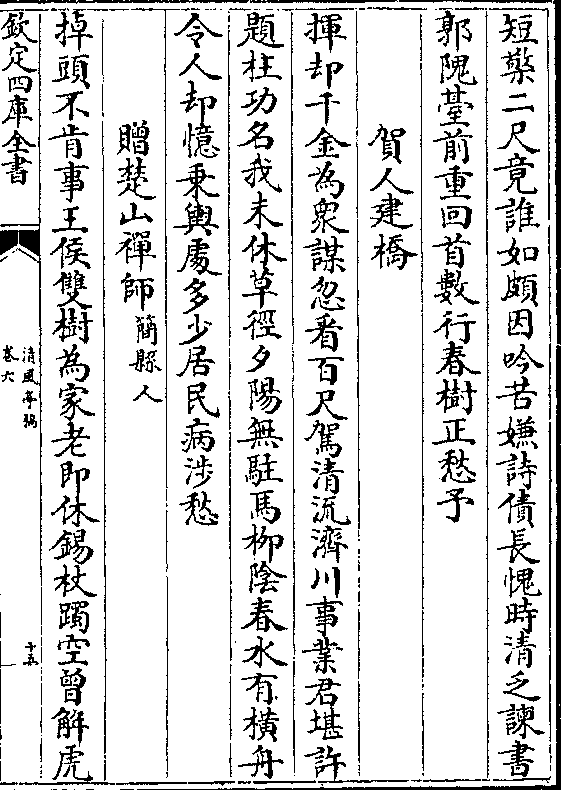 短檠二尺竟誰如頗因吟苦嫌詩債長愧時清乏諫書
郭隗臺前重回首數行春樹正愁予
賀人建橋
揮却千金為衆謀忽看百尺駕清流濟川事業君堪許
題柱功名我未休草徑夕陽無駐馬柳陰春水有橫舟
令人却憶乘輿處多少居民病涉愁
贈楚山禪師簡縣人
掉頭不肯事王侯雙樹為家老即休錫杖躅空曾解虎
欽定四庫全書
清風亭稿
卷六
十五